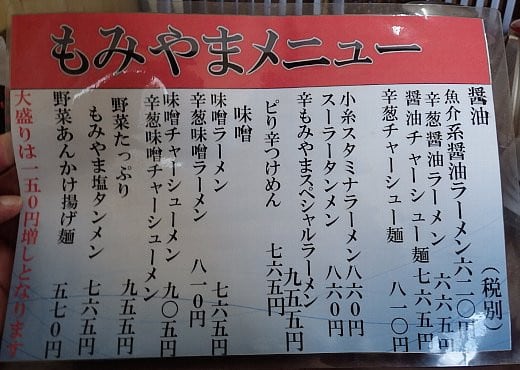 もみやまメニュー
(税別)
醤油
魚介系醤油ラーメン 六二〇円
辛葱醤油ラーメン 六六五円
醤油チャーシュー麺 七六五円
辛葱チャーシュー麺 八一〇円
小糸スタミナラーメン 八六〇円
スーラータンメン 八六〇円
辛もみやまスペシャルラーメン 九五五円
ピり辛つけめん 七六五円
味噌
味噌ラーメン 七六五円
辛葱味噌ラーメン 八一〇円
味噌チャーシューメン 九〇五円
辛葱味噌チャーシューメン
野菜たっぷり
もみやま塩タンメン 九五五円
野菜あんかけ揚げ麺 七六五円
五七〇円
大盛りは一五〇円増しとなります